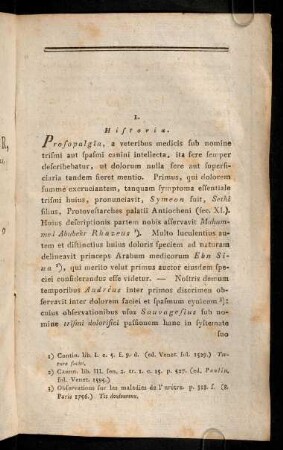 I.
Historia.
Prosopalgia, a veteribus medicis sub nomine
trismi aut spasmi canini intellecta, ita fere semper
describebatur, ut dolorum nulla fere aut superfi-
ciaria tandem fieret mentio. Primus, qui dolorem
summe excruciantem, tanquam symptoma essentiale
trismi huius, pronunciavit, Symeon fuit, Sethi
filius, Protovestarches palatii Antiocheni (sec. XI.).
Huius descriptionis partem nobis asservavit Moham-
med Abubekr Rhazeus ¹). Multo luculentius au-
tem et distinctius huius doloris speciem ad naturam
delineavit princeps Arabum medicorum Ebn Si-
na ²), qui merito velut primus auctor eiusdem spe-
ciei considerandus esse videtur. — Nostris demum
temporibus Andrius inter primos discrimen ob-
servavit inter dolorem faciei et spasmum cynicum ³);
cuius observationibus usus Sauvagesius sub no-
mine trismi dolorifici passionem hanc in systemate
suo
1) Contin. lib. I. c. 5. f. 9. d. (ed. Venet. fol. 1529.) Tor-
tura faciei.
2) Canon. lib. III. fen. 2. tr. 1. c. 15. p. 527. (ed. Paulin.
fol. Venet. 1594.)
3) Observations sur les maladies de l'urètre. p. 318. f. (8.
Paris 1756.) Tic douloureux.